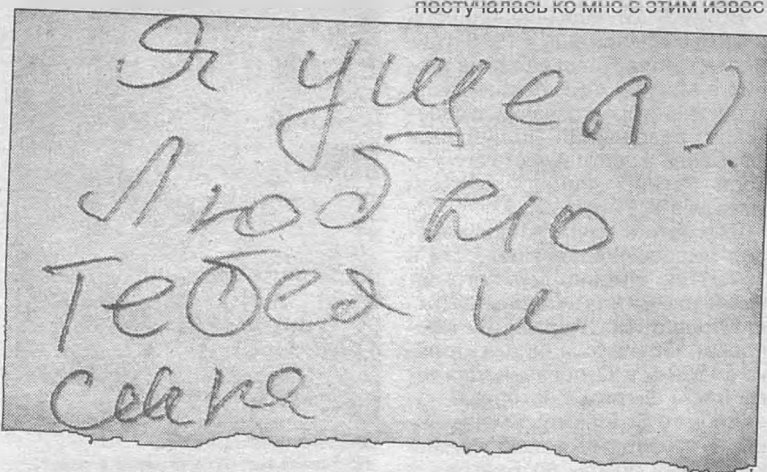 постучалась ко мне с этим извес
Я ушел!
Люблю
тебя и
сына